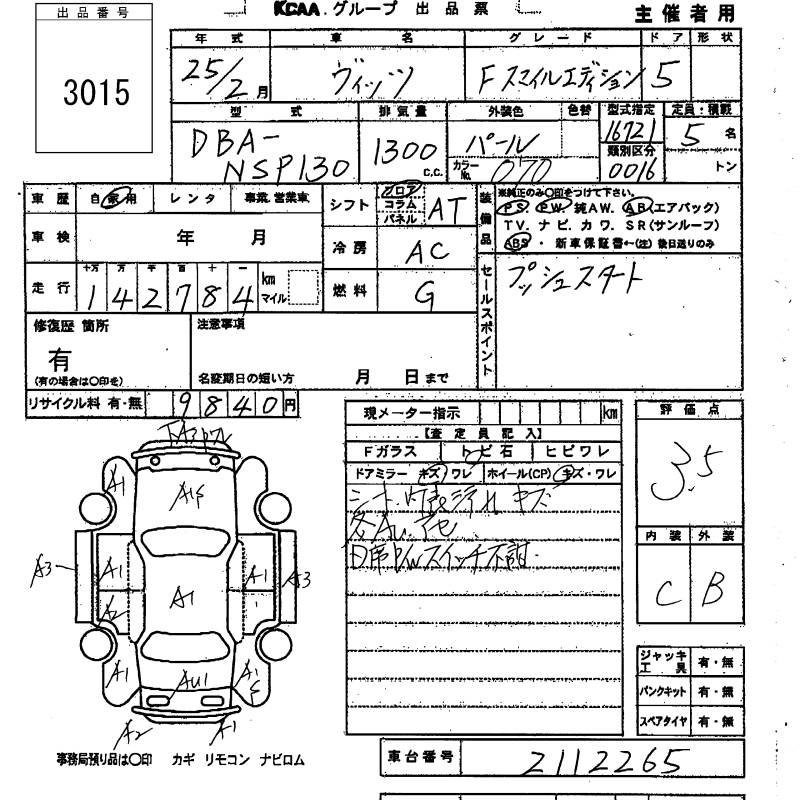 出品番号
3015
KCAA.グループ 出品票
主催者用
年式 車名 グレード ドア形状
25/2月 ヴィッツ Fスマイルエディション 5
型式 排気量 外装色 色替 型式指定 定員・積載
DBA-NSP130 1300c.c. パール 16721 5名
カラーNo. 070 類別区分 0016 トン
車歴 自家用 レンタ 事業.営業車
車検 年 月
走行 十万 万 千 百 十 一
142784 km マイル
シフト フロア コラム パネル AT
冷房 AC
燃料 G
装備品 ※純正のみ〇印をつけて下さい。
PS. PW. 純AW. AB(エアバック)
TV. ナビ. カワ. SR(サンルーフ)
ABS・新車保証書←(注)後日送りのみ
セールスポイント
プッシュスタート
修復歴 箇所
有
(有の場合は〇印を)
注意事項
名変期日の短い方 月 日まで
リサイクル料 有・無 9840円
現メーター指示 km
【査定員記入】
Fガラス トビ石 ヒビワレ
ドアミラー キズ・ワレ ホイール(CP) キズ・ワレ
シート.内張汚れ キズ
各AU.アセ
D席P/Wスイッチ不調.
評価点
3.5
内装 外装
C B
ジャッキ工具 有・無
パンクキット 有・無
スペアタイヤ 有・無
A1
A1S
A3
A1
A1
A3
A2
A1
A1
AU1
A1S
A2
A1
事務局預り品は〇印 カギ リモコン ナビロム
車台番号 2112265